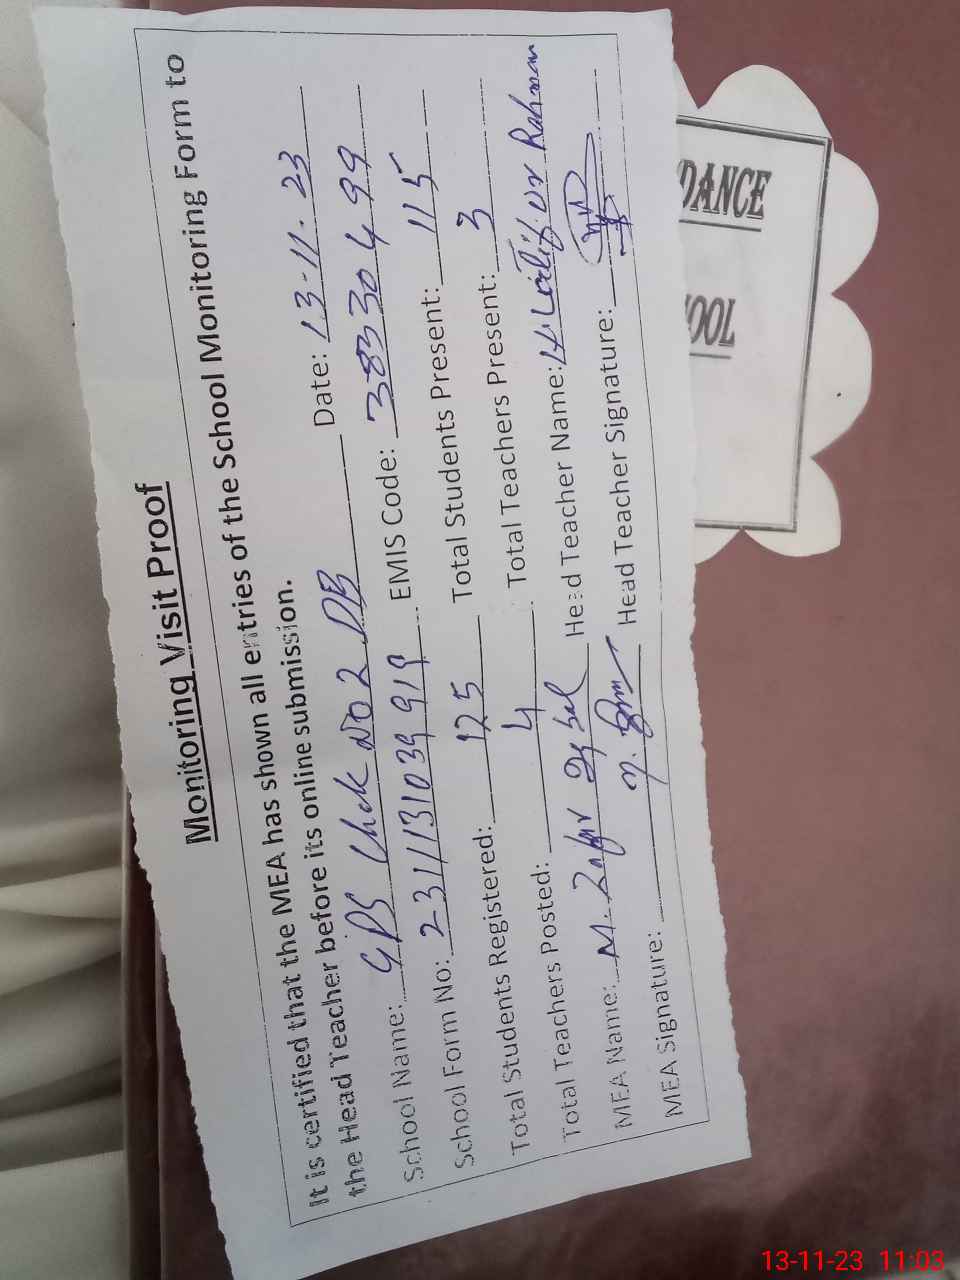 Monitoring Visit Proof
It is certified that the MEA has shown all entries of the School Monitoring Form to
the Head Teacher before its online submission.
School Name: GPS Chek No 2 DB Date: 13-11-23
School Form No: 231113103 919 EMIS Code: 38330499
Total Students Registered: 125 Total Students Present: 115
Total Teachers Posted: 4 Total Teachers Present: 3
MEA Name: M. Zafar Iqbal Head Teacher Name: ur Rahman
MEA Signature: Head Teacher Signature:
DANCE
OOL
13-11-23 11:03